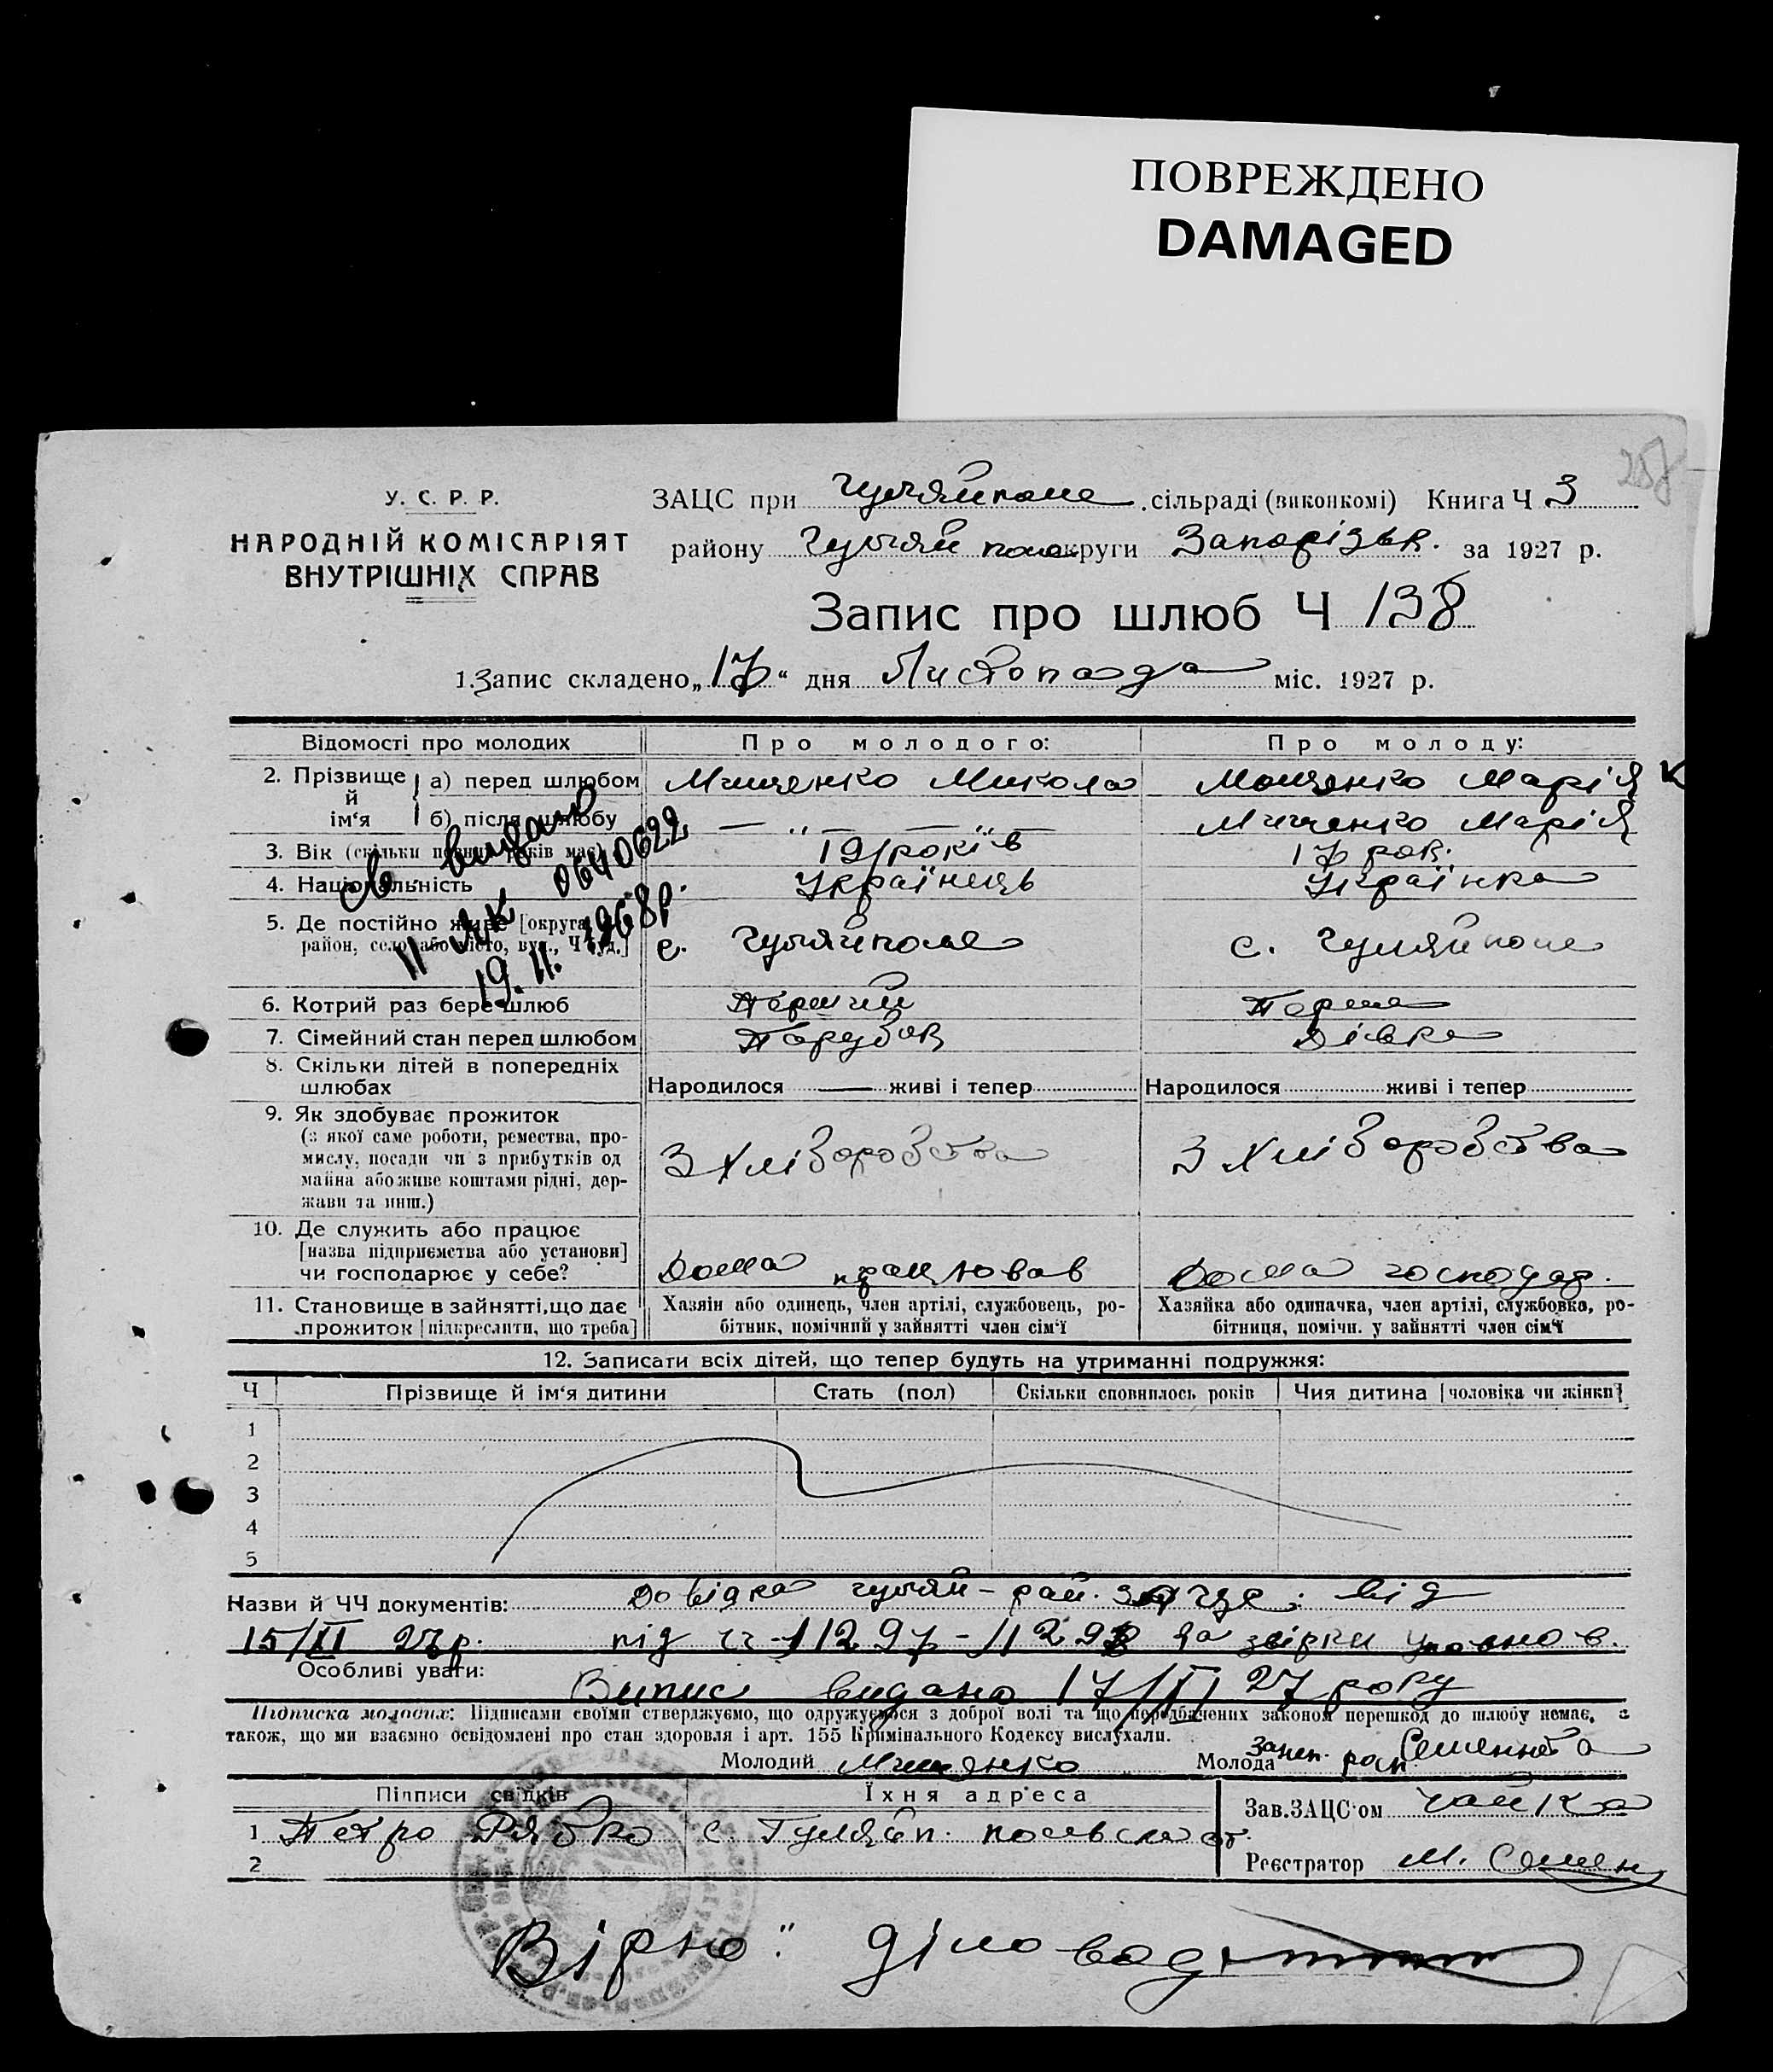 ПОВРЕЖДЕНО
DAMAGED
258
У. С. Р. Р.
НАРОДНІЙ КОМІСАРІЯТ
ВНУТРІШНІХ СПРАВ
ЗАЦС при Гуляйполе сільраді (виконкомі) Книга Ч 3
району Гуляйполе округи Запорізьк. за 1927 р.
Запис про шлюб Ч 138
1. Запис складено „17“ дня Листопада міс. 1927 р.
Відомості про молодих Про молодого: Про молоду:
2. Прізвище й ім‘я а) перед шлюбом Мищенко Микола Мощенко Марія к
б) після шлюбу — „ — — „ — Мищенко Марія
3. Вік (скільки повних років має) 19 років 17 рок.
4. Національність Українець Українка
5. Де постійно живе [округа,
район, село або місто, вул., Ч буд.] с. Гуляйполе с. Гуляйполе
св. видано
II ЯК 0640622
19. II. 1968р.
6. Котрий раз бере шлюб Перший Перша
7. Сімейний стан перед шлюбом Парубок Дівка
8. Скільки дітей в попередніх
шлюбах Народилося — живі і тепер Народилося живі і тепер
9. Як здобуває прожиток
(з якої саме роботи, ремества, про-
мислу, посади чи з прибутків од
майна або живе коштами рідні, дер-
жави та инш.) З хліборобства З хліборобства
10. Де служить або працює
[назва підприємства або установи]
чи господарює у себе? Дома працював Дома господар.
11. Становище в зайнятті, що дає
прожиток [підкреслити, що треба]
Хазяїн або одинець, член артілі, службовець, ро-
бітник, помічний у зайнятті член сім‘ї
Хазяйка або одиначка, член артілі, службовка, ро-
бітниця, помічн. у зайнятті член сім‘ї
12. Записати всіх дітей, що тепер будуть на утриманні подружжя:
Ч Прізвище й ім‘я дитини Стать (пол) Скільки сповнилось років Чия дитина [чоловіка чи жінки]
1
2
3
4
5
Назви й ЧЧ документів: Довідка Гуляй-рай. від
15/XI 27р. під чч 11297-11298 за
Особливі уваги: Випис видано 17/XI 27 року
Підписка молодих: Підписами своїми стверджуємо, що одружуємося з доброї волі та що передбачених законом перешкод до шлюбу немає, а
також, що ми взаємно освідомлені про стан здоровля і арт. 155 Крімінального Кодексу вислухали.
Молодий Мищенко Молода
Підписи свідків Їхня адреса Зав. ЗАЦС‘ом Чайка
1 Петро Рябко с. Гуляйп.
2 Реєстратор М. Семен
Вірно: Діловод